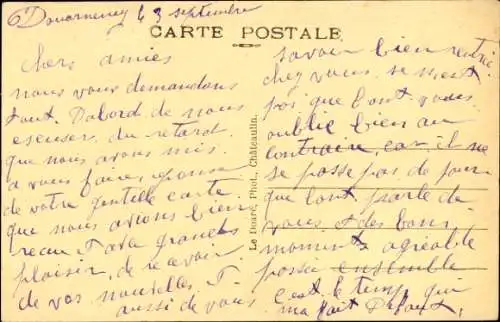 Douarnenez 63 septembre
CARTE POSTALE
chers amies
nous vous demandons
tout. Dabord de nous
escuser du retard
que nous avons mis
a vous faire reponse
de votre gentille carte
que nous avions bien
reau. Tave grands
plaisir, de recevoir
de vos nouvelles. T.
aussi de vous
Le Doaré, Phot., Châteaulin.
savoir bien rentré
chez vous. se n'est
poi que l'ont vous
oublie bien au
contraire, car il ne
se posse pas de jour
que l'ont parle de
vous et des bons
moments agréable
possée ensemble
c'est le temp que
ma fait Defaut.